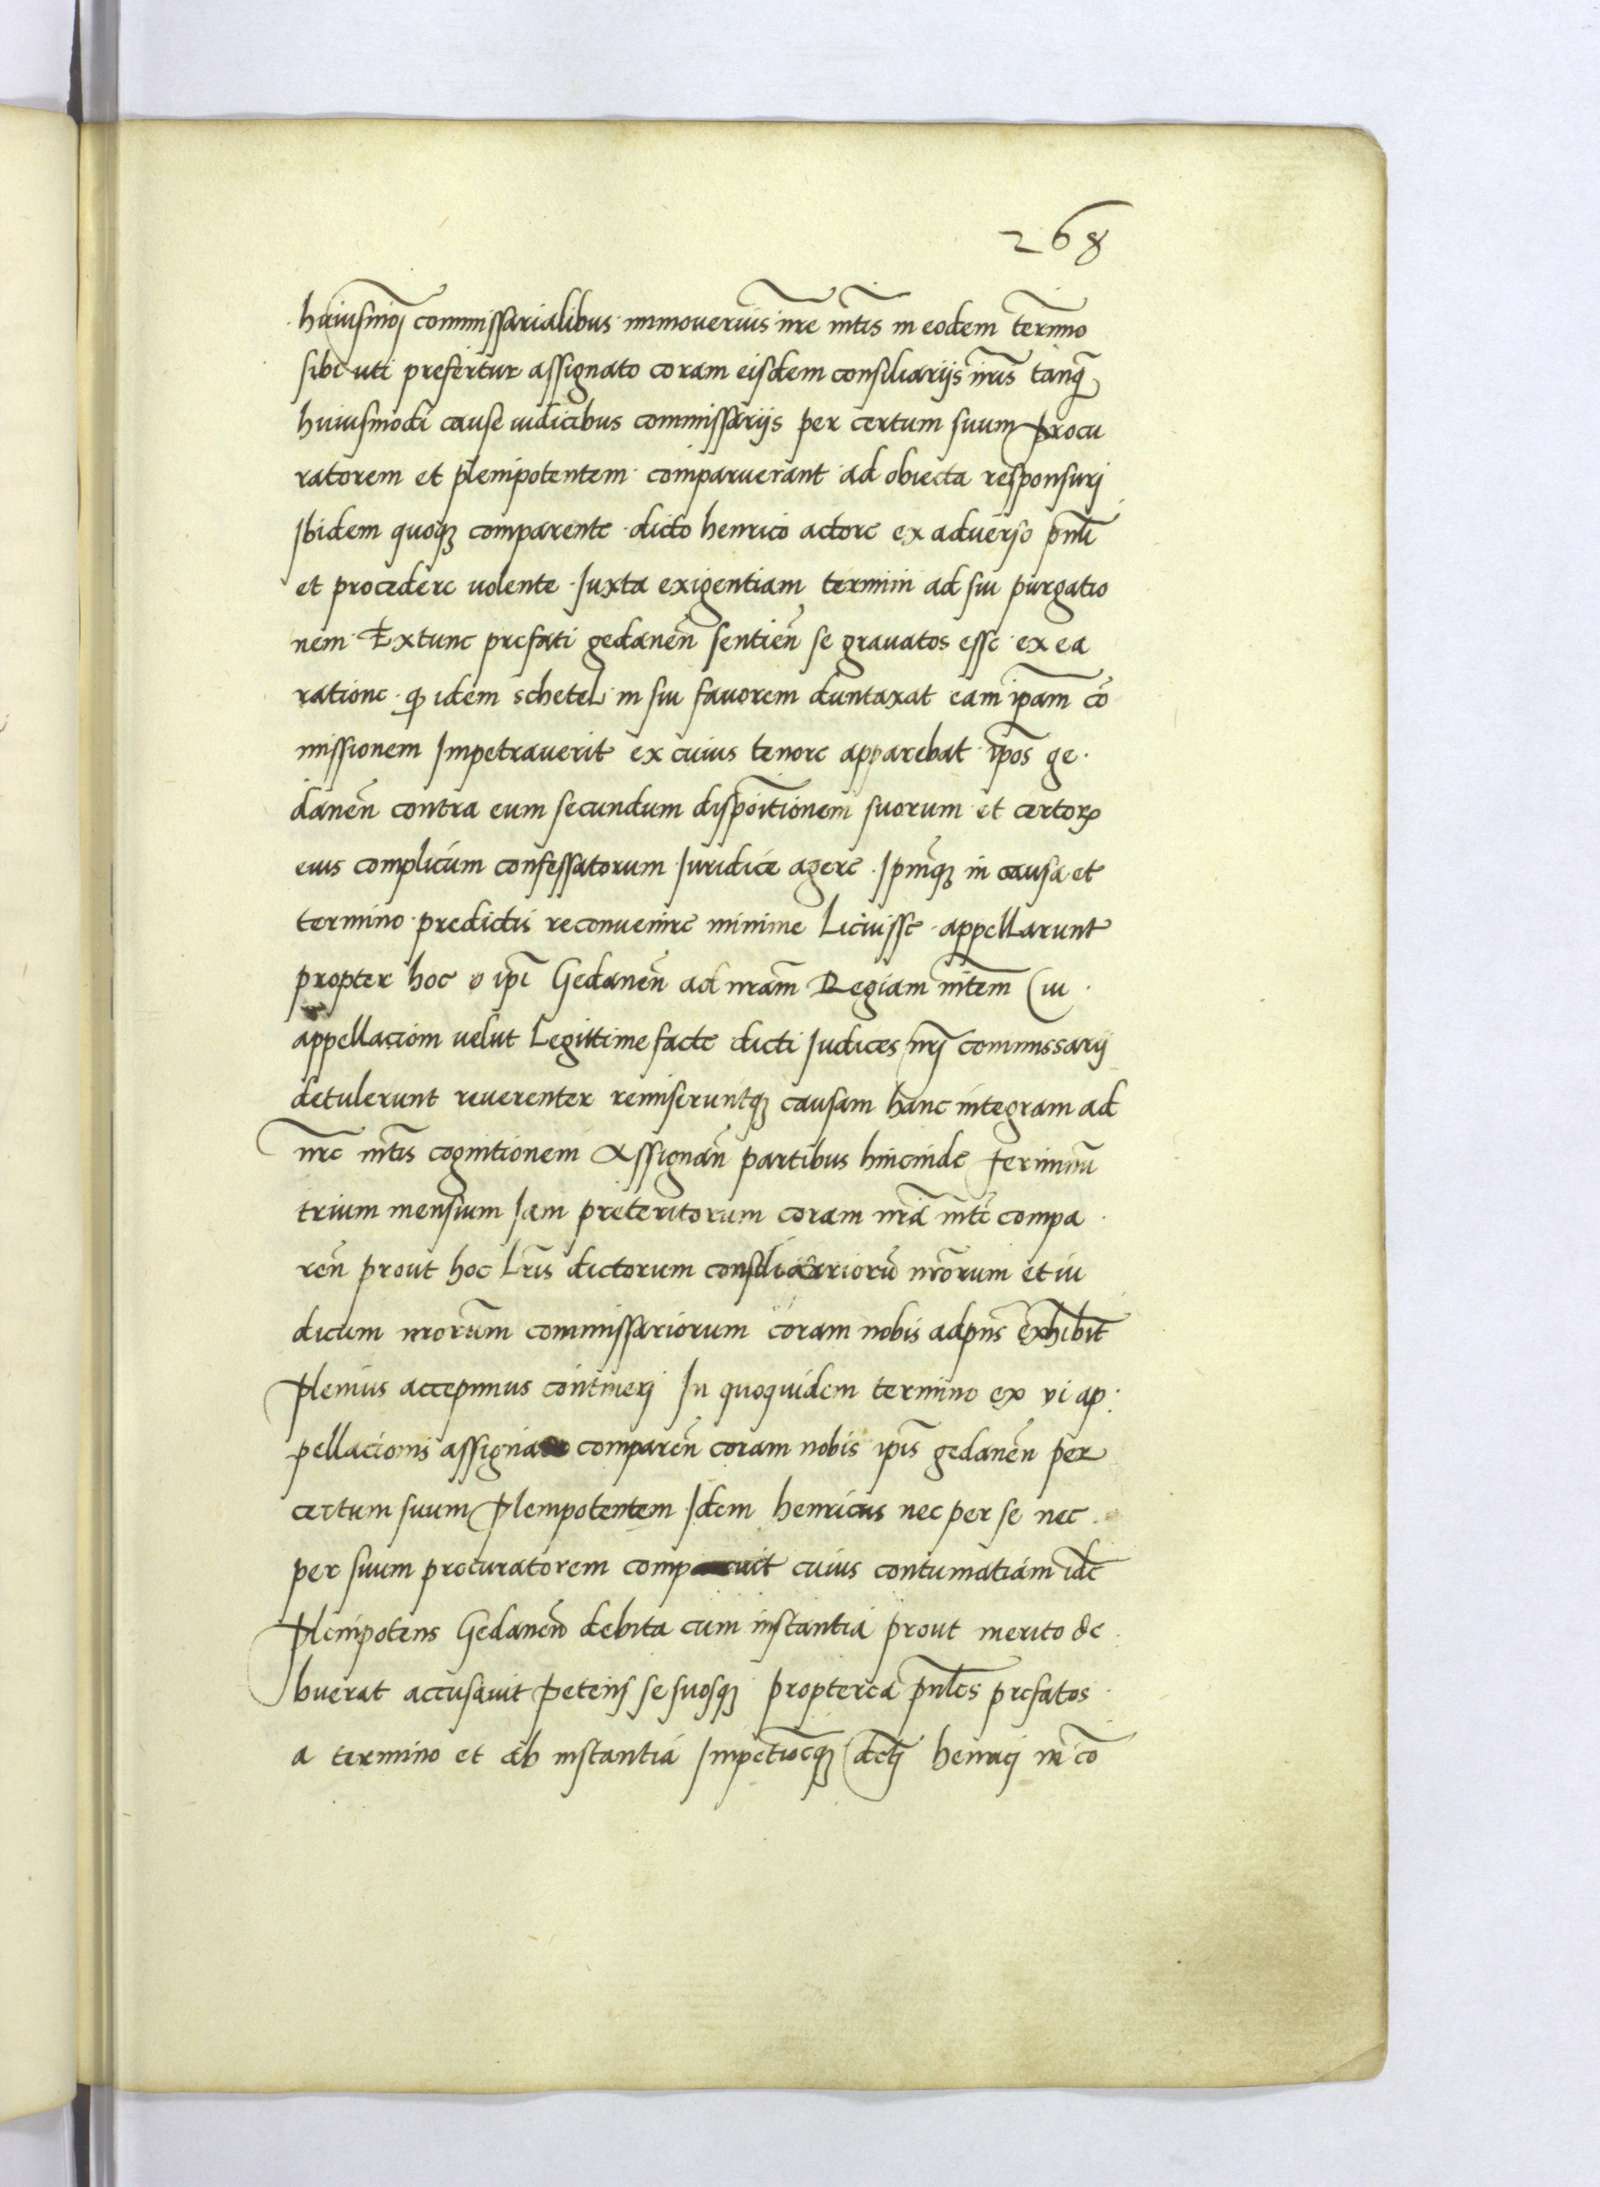 268
huiusmoj commissarialibus immoverius nre mtis in eodem termino
sibi uti prefertur assignato coram eisdem consiliarijs nris tanq
huiusmodi cause iudicibus commissarijs per certum suum procu
ratorem et plenipotentem comparuerant ad obiecta responsurj
Ibidem quoq comparente dicto henrico actore ex adverso pnti
et procedere volente Juxta exigentiam termini ad sui purgatio
nem Extunc prefati gedanen sentien se gravatos esse ex ea
ratione q idem schetel in sui favorem duntaxat eam ipam co
missionem Impetraverit ex cuius tenore apparebat ipos ge
danen contra eum secundum dispoitionem suorum et certor
eius complicum confessatorum Juridice agere Ipmq in causa et
termino predictis reconvenire minime Licuisse appellarunt
propter hoc ipi Gedanen ad nram Regiam mtem Cui
appellaciom velut Legittime facte dicti Judices nrj commissarij
detulerunt reverenter remiseruntq causam hanc integram ad
nre mtis cognitionem Assignan partibus hincinde Terminu
trium mensium Jam preteritorum coram nra mte compa
ren prout hoc Lris dictorum consiliarioru nrorum et iu
dicum nrorum commissariorum coram nobis adpns exhibit
Plenius accepimus contineri In quoquidem termino ex vi ap
pellacionis assignato comparen coram nobis ipis gedanen per
certum suum Plenipotentem Idem henricus nec per se nec
per suum procuratorem comparuit cuius contumatiam ide
Plenipotens Gedanen debita cum instantia prout merito de
buerat accusavit Petens se suosq propterea pnles prefatos
a termino et ab instantia Impetioeq dctj henricj in co